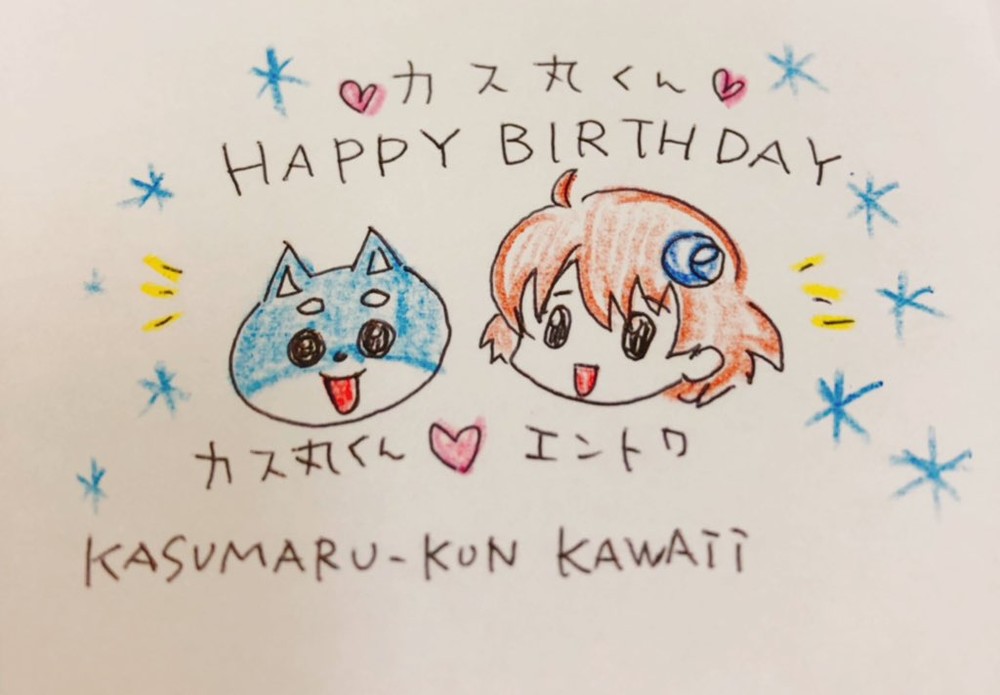 カス丸くん
HAPPY BIRTHDAY.
カス丸くん エントワ
KASUMARU-KUN KAWAii